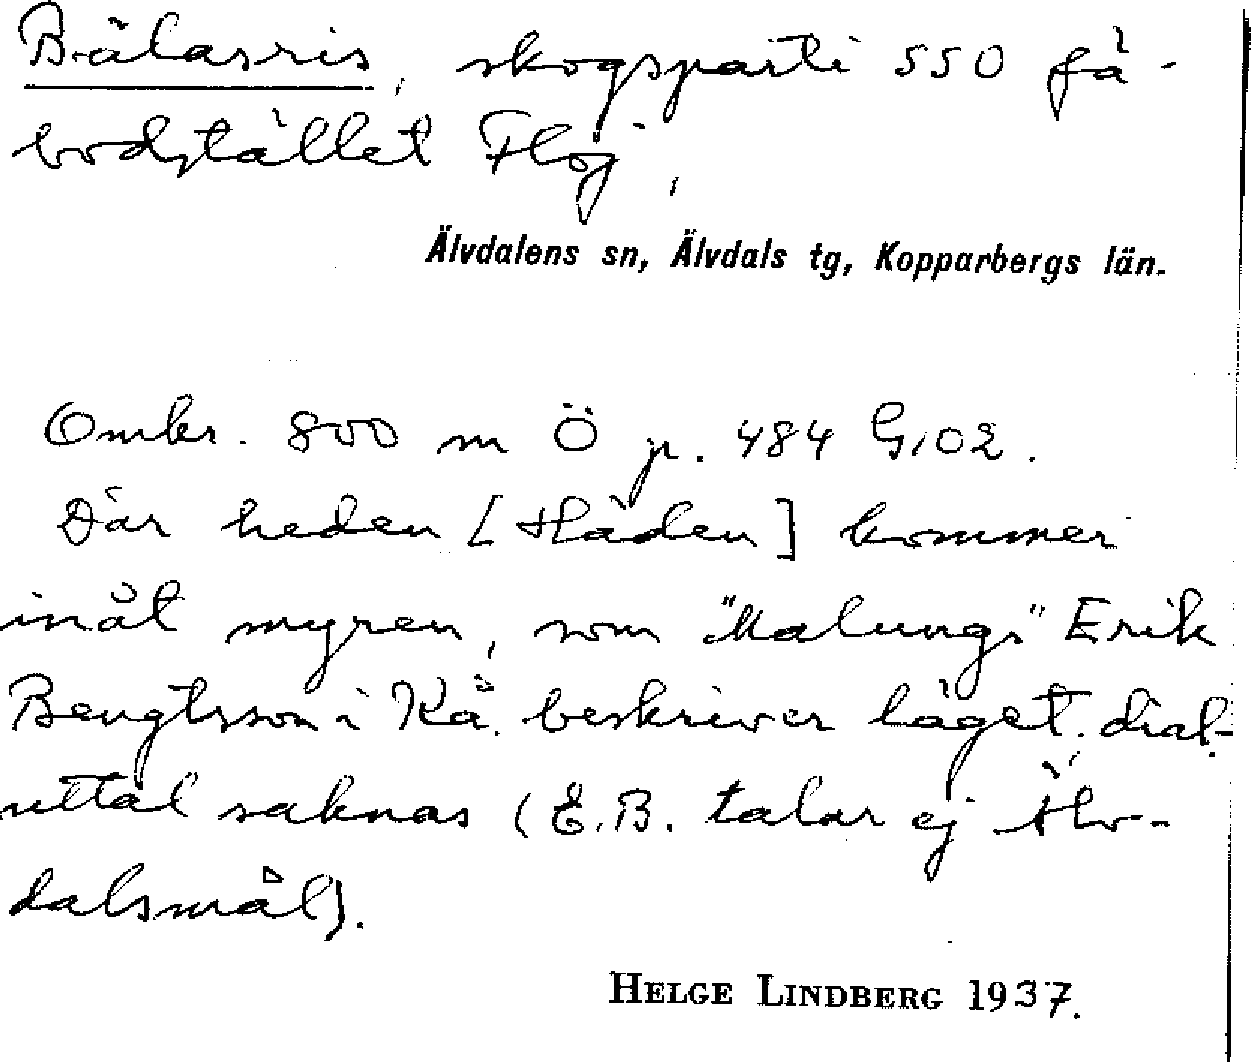 Bälasris, skogsparti SSO fä-
bodstället Flöj,
Älvdalens sn, Älvdals tg, Kopparbergs län.
Omkr. 800 m Ö p. 484 G,02.
Där heden [Häden] kommer
inåt myren, som "Malungs" Erik
Bengtsson i Kå. beskriver läget. dial.-
uttal saknas (E.B. talar ej Älv-
dalsmål).
HELGE LINDBERG 1937.